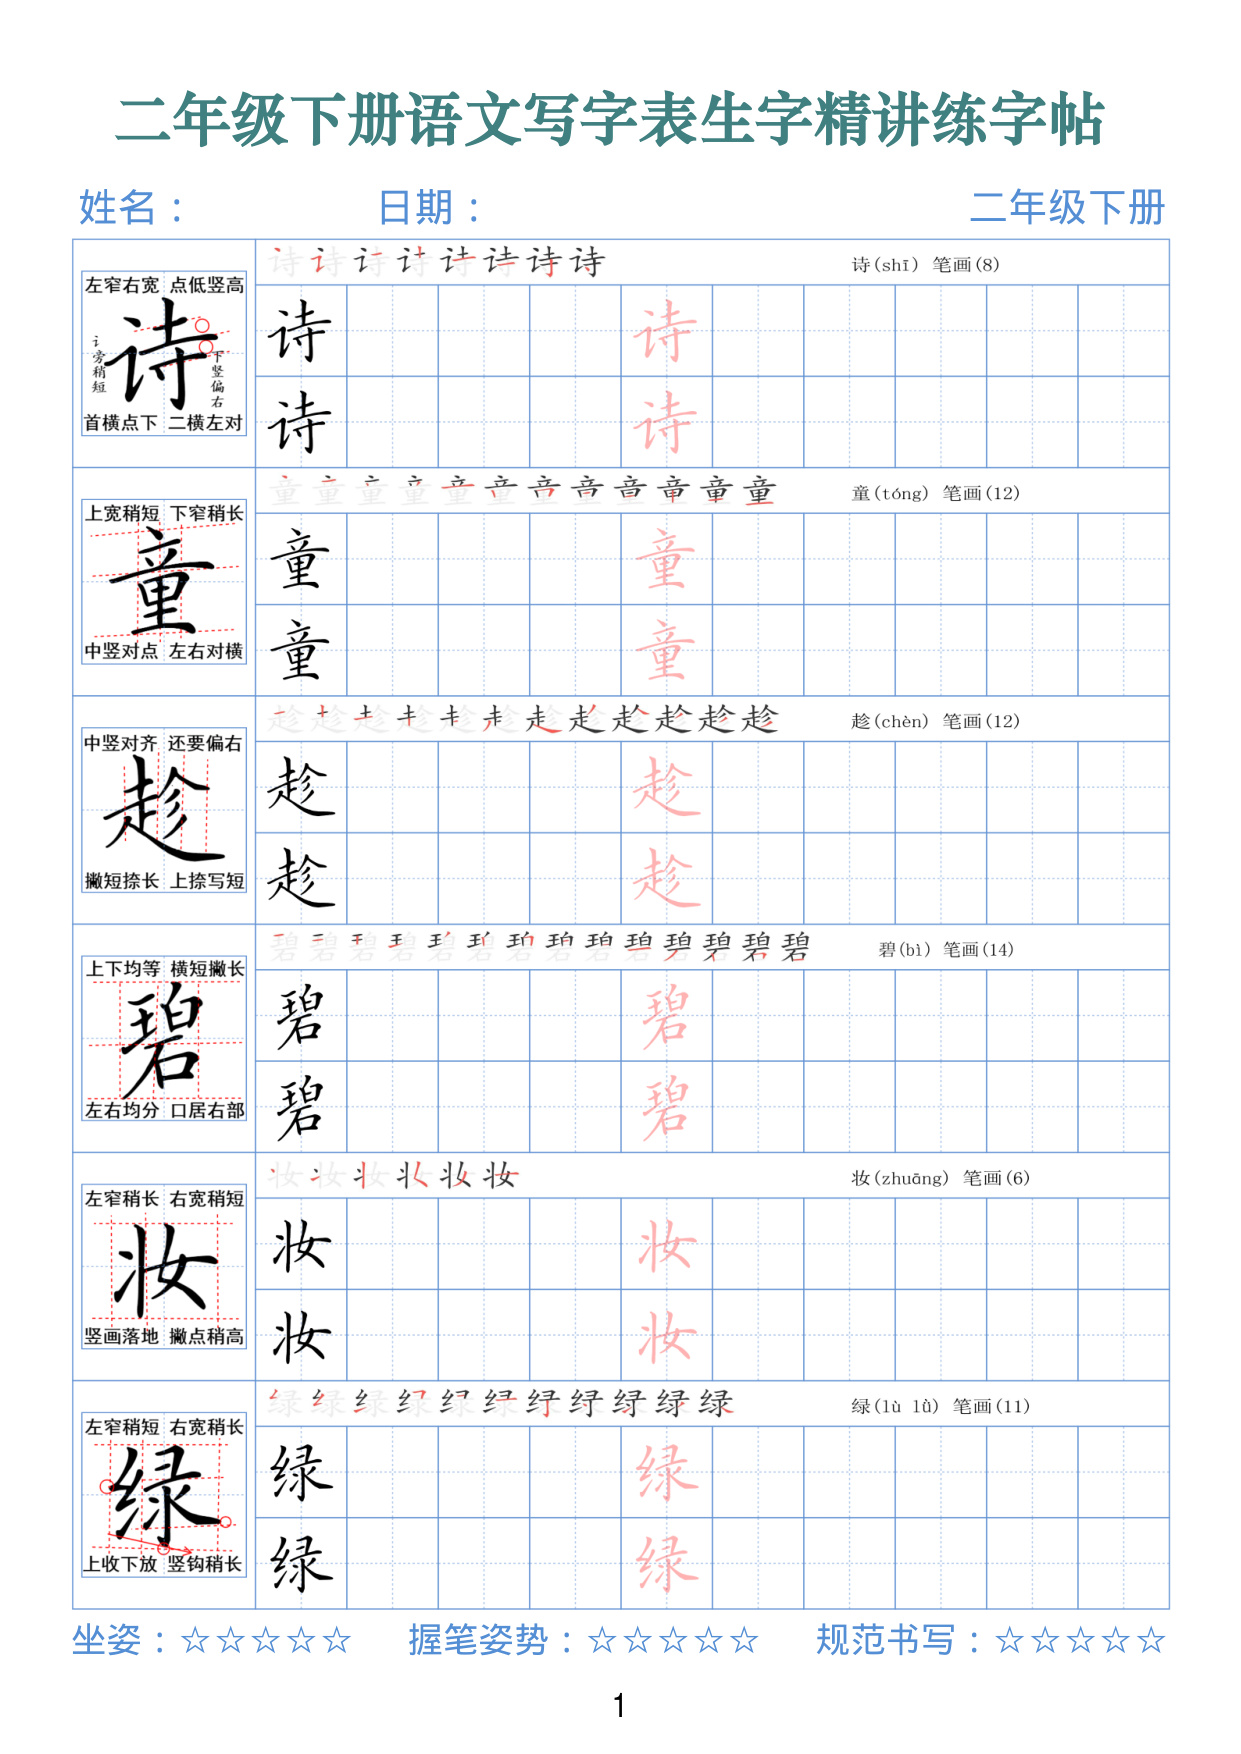 二年级下册语文写字表生字精讲练字帖
姓名： 日期： 二年级下册
诗诗诗诗诗诗诗诗 诗(shī) 笔画(8)
左窄右宽 点低竖高
诗
讠旁稍短
下竖偏右
首横点下 二横左对
诗 诗
诗 诗
童童童童童童童童童童童童 童(tóng) 笔画(12)
上宽稍短 下窄稍长
童
中竖对点 左右对横
童 童
童 童
趁趁趁趁趁趁趁趁趁趁趁趁 趁(chèn) 笔画(12)
中竖对齐 还要偏右
趁
撇短捺长 上捺写短
趁 趁
趁 趁
碧碧碧碧碧碧碧碧碧碧碧碧碧碧 碧(bì) 笔画(14)
上下均等 横短撇长
碧
左右均分 口居右部
碧 碧
碧 碧
妆妆妆妆妆妆 妆(zhuāng) 笔画(6)
左窄稍长 右宽稍短
妆
竖画落地 撇点稍高
妆 妆
妆 妆
绿绿绿绿绿绿绿绿绿绿绿 绿(lù lǜ) 笔画(11)
左窄稍短 右宽稍长
绿
上收下放 竖钩稍长
绿 绿
绿 绿
坐姿：☆☆☆☆☆ 握笔姿势：☆☆☆☆☆ 规范书写：☆☆☆☆☆
1